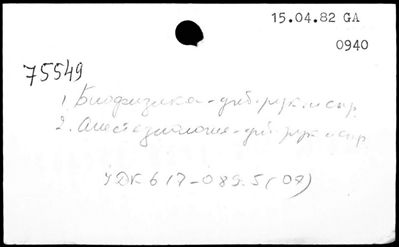 15.04.82 GA
0940
75549
1. Биофизика - учеб. рук. и спр.
2. Анестезиология - учеб. рук. и спр.
УДК 617-089.5(07)